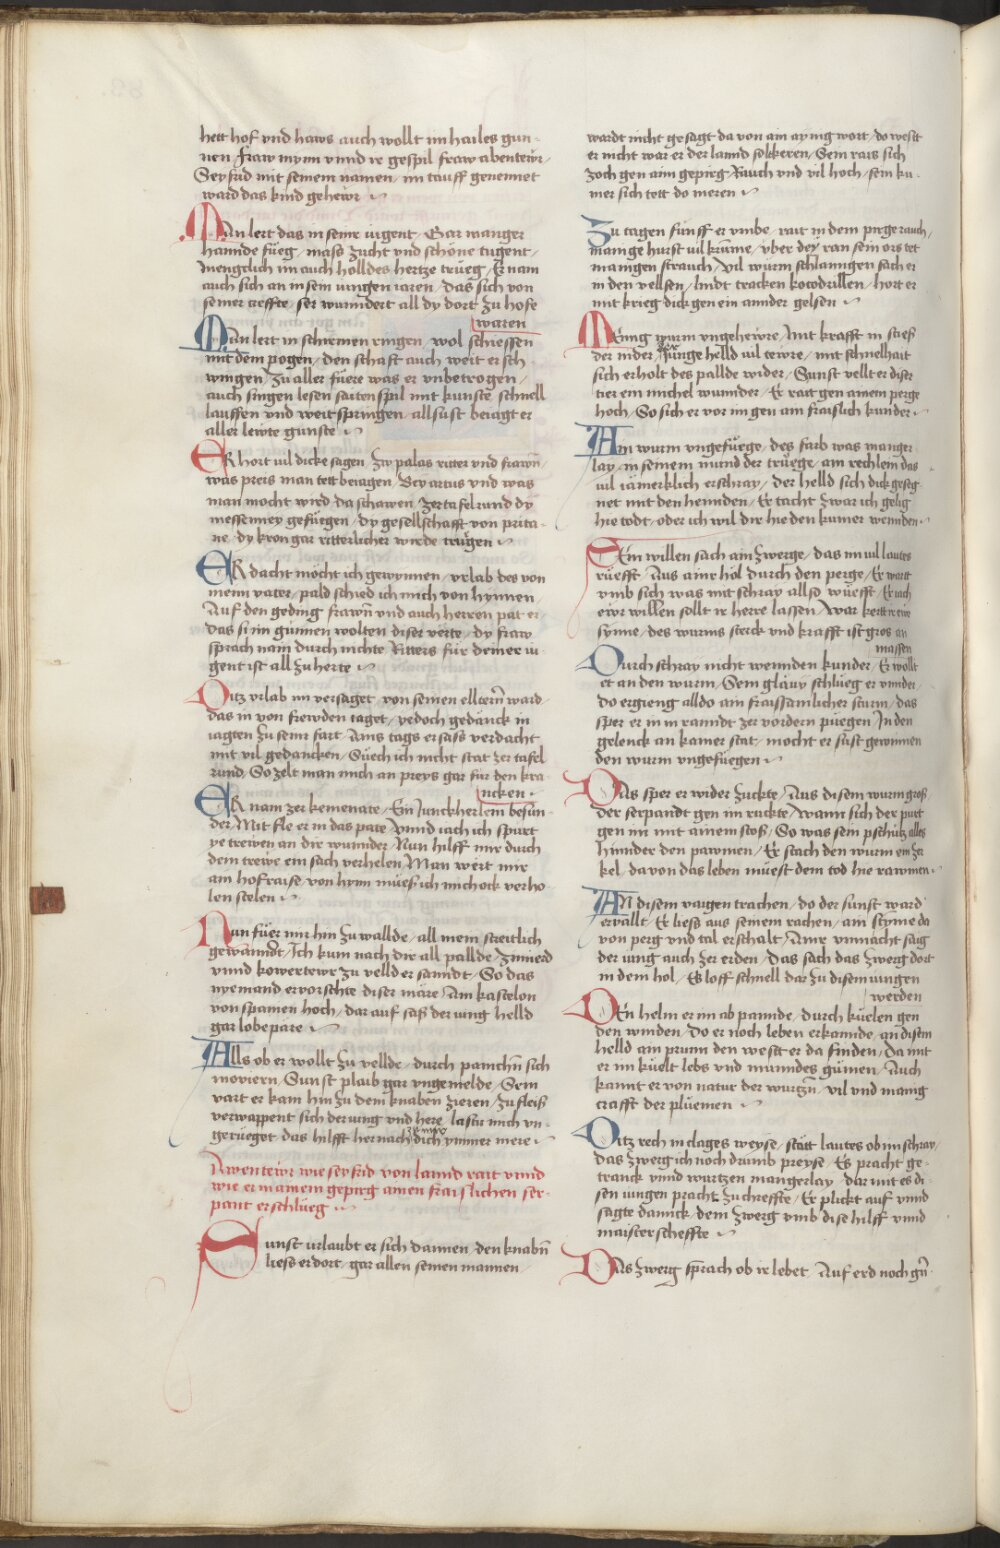 hett hof vnd haws auch wollt im hailes gun-
nen fraw mynn vnnd ir gespil fraw abentewr
Seyfrid mit seinem namen im tauff genennet
ward das kind gehewr
Man lert das in seinr iugent Gar manger
hannde füeg mass zucht vnd schöne tugent
Mengelich im auch holldes hertze trueg Er nam
auch sich an in sein iungen iaren das sich von
seiner treffte ser wunndert all dy dort zu hofe
waren
Man lert in schirmen ringen wol schiessen
mit dem pogen den schaft auch weit er sch
wingen zu aller füere was er vnbetrogen
auch singen lesen saitenspil mit kunste schnell
lauffen vnd weit springen all sust beiagt er
aller lewte gunste
ER hort vil dicke sagen zw palas ritter vnd frawn
was preis man tett beiagen Bey artus vnd was
man mocht wird da schawen zer tafelrund dy
messenney gefüegen dy gesellschafft von prita-
ne dy kron gar ritterlicher wirde truegen
ER dacht möcht ich gewynnen vrlab des von
meim vater pald schied ich mich von hynnen
Auf den geding frawn vnd auch herren pat er
das si im günnen wolten diser verte dy fraw
sprach nain durch nichte Ritters für deiner iu
gent ist all zu herte
Ditz vrlab im versaget von seinen elltern ward
das in von frewden iaget yedoch gedanck in
iagten zu seinr fart Ains tags er sass verdacht
mit vil gedancken Süech ich nicht stat zer tafel
rund So zelt man mich an preys gar für den kra
ncken
ER nam zer kemenate Ein Junckherlein besun-
der Mit fle er in das pate vnnd iach ich spürt
ye trewen an dir wunnder Nun hilff mir durch
dein trewe ein sach verhelen Man wert mir
ain hofraise von hynn müesz ich mich ock verho
len stelen
Nun füer mir hin zu wallde all mein streitlich
gewannt Ich kum nach dir all pallde zimierd
vnnd kowertewr zu velld er sanndt So das
nyemand ervorschte diser märe Am kastelon
von spanien hoch dar auf sass der iung helld
gar lobepäre
Alls ob er wollt zu vellde durch panichn sich
moviern Sunst plaib gar vngemelde Sein
vart er kam hin zu dem knaben zieren zu fleiß
verwappent sich der iung vnd here lastu mich vn-
gerüeget das hilfft her nach dich ymmer mere
Awentewr wie seyfrid von lannd rait vnnd
wie er in ainem gepirg ainen fraislichen ser-
pant erschlueg
Sunst vrlaubt er sich dannen den knabn
liess er dort gar allen seinen mannen
wardt nicht gesagt da von ain aynig wort do westt
er nicht war er der lannd sollt keren Sein rais sich
zoch gen aim gepirg Rauch vnd vil hoch sein ku-
mer sich tett do meren
Zu tagen fünff er vmbe rait in dem pirge rauch
mainge hurst vil krume vber dey ran sein ors tet
maingen strauch vil würm schlanngen sach er
in den vellsen lindt tracken kocodrillen hort er
mit krieg dick gen ein annder gelsen
Mänig wurm vngehewre Mit krafft in stieß
der nider der Junge helld vil tewre mit schnelhait
sich erholt des pallde wider Sunst vellt er diser
tier ein michel wunnder Er rait gen ainem perge
hoch So sich er vor im gen ain fraislich kunder
Ain wurm vngefüege des farb was manger
lay in seinem mund der trüege ain rechlein das
vil iämerklich erschray der helld sich dick geseg
net mit den hennden Er tacht zwar ich gelig
hie todt oder ich wil dir hie den kumer wennden
Sein willen sach ain zwerge das im vil lautes
rüefft Aus ainr hol durch den perge Er wart
vmb sich was mit schray allso wüefft Er iach
ewr willen sollt ir herre lassen War kert ir ewr
synne des wurms sterck vnd krafft ist gros an
massen
Durch schray nicht wennden kunder Er wollt
et an den wurm Sein gläuy schlueg er vnnder
do ergieng alldo ain fraissamlicher sturm das
sper er in im ranndt zer vordern püegen In den
gelenck an kainer stat mocht er sust gewinnen
den wurm vngefüegen
Das sper er wider zuckte Aus disem wurm groß
der serpandt gen im ruckte Wann sich der purt
gen im mit ainem stoß So was sein pschütz alles
hinnder den pawmen Er stach den wurm ein zer
kel da von das leben muest dem tod hie rawmen
An disem vaigen trachen do der sunst ward
ervallt Er liess aus seinem rachen ain stymme da
von perg vnd tal erschalt Ainr vnmacht saig
der iung auch zer erden Das sach das zwerg dort
in dem hol Es loff schnell dar zu disem iungen
werden
Den helm er im ab pannde durch küelen gen
den winden Do er noch leben erkannde an disem
helld ain prunn den westt er da finden Da mit
er im küelt lebs vnd munndes gümen Auch
kannt er von natur der wurtzn vil vnd manig
crafft der plüemen
Ditz rech in clages weyse stätt lautes ob im schray
Das zwerg ich noch drumb preyse Es pracht ge-
tranck vnnd wurtzen mangerlay dar mit es di-
sen iungen pracht zu chreffte Er plickt auf vnnd
sagte dannck dem zwerg vmb dise hilff vnnd
maisterscheffte
Das zwerg sprach ob ir lebet Auf erd noch gn